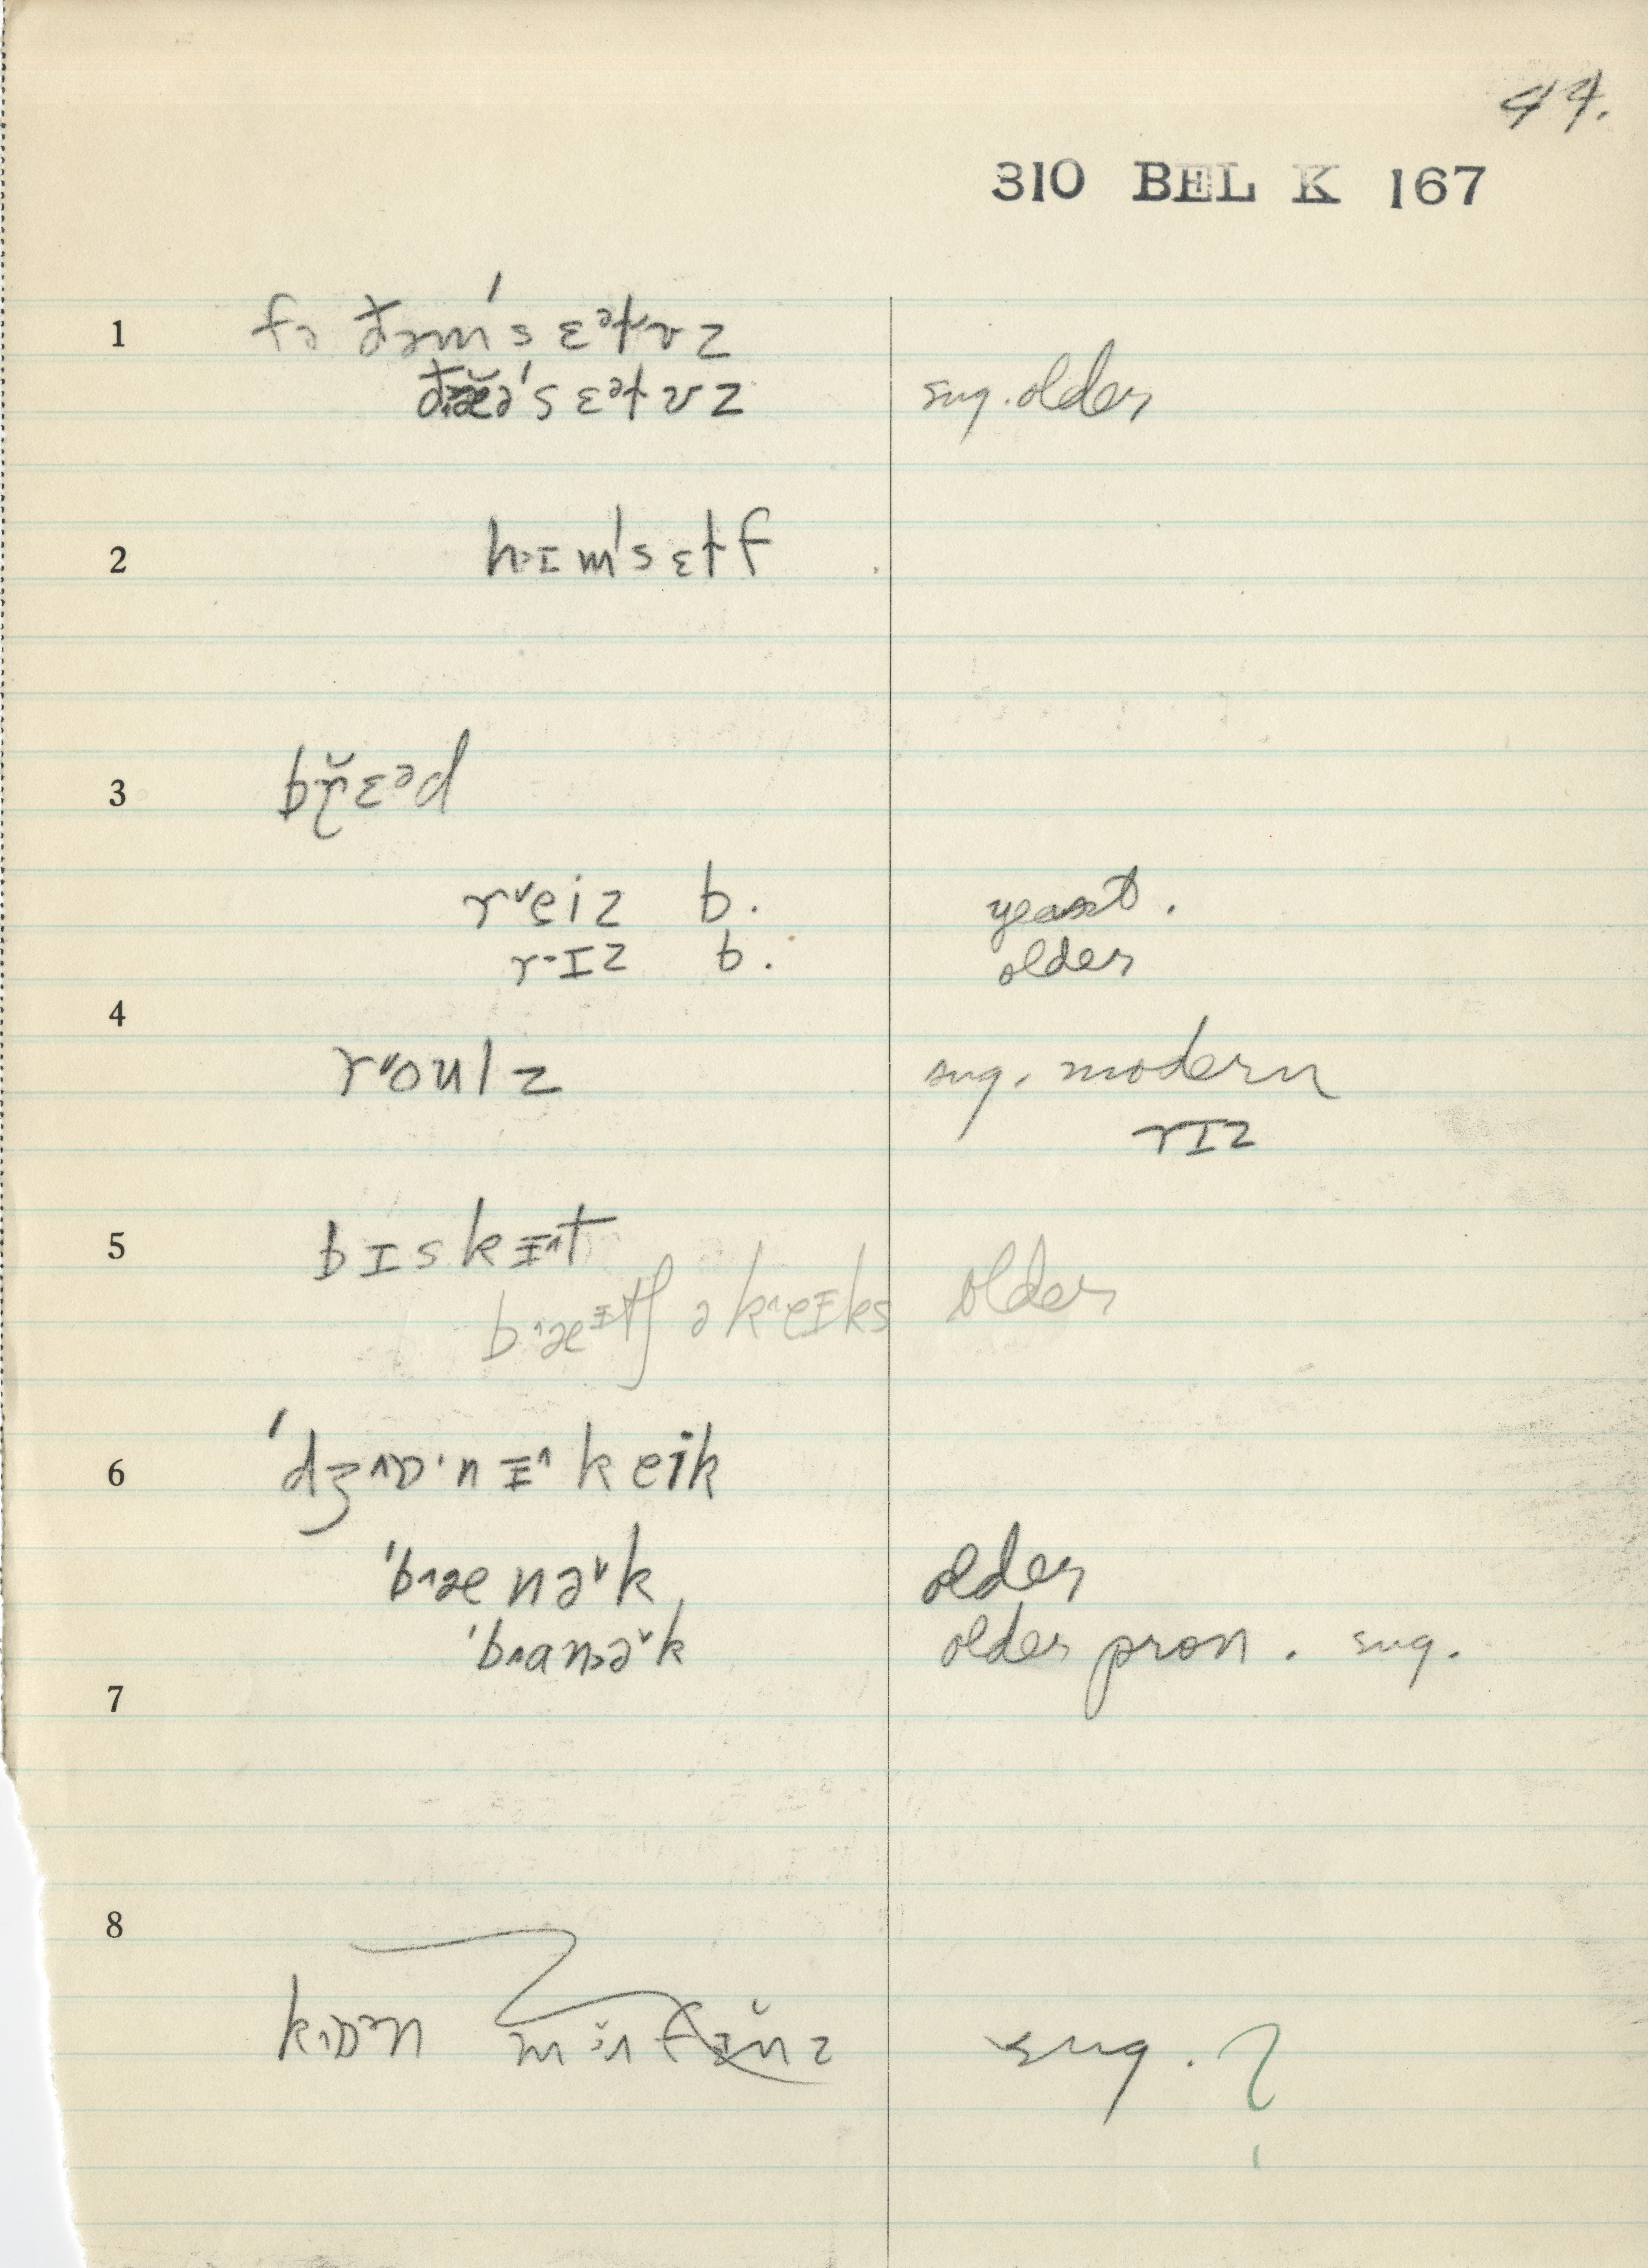 44.
310 BEL K 167
1 fə đəm's ɛᵊɫvz
đæə̆'s ɛᵊɫvz sug. older
2 hɪm's ɛɫf
3 br̯̆ɛᵊd
r˅eiz b. yeast.
r·ɪz b. older
4
r˅oulz sug. modern
rɪz
5 bɪskɪ^t
b^æᴵtʃ ə k^eɪks older
6 'dʒ^ɒ·nɪ^ keik
'b^æ nə˅k older
'b^anə˅k older pron. sug.
7
8
kɒᵊn sug. ?